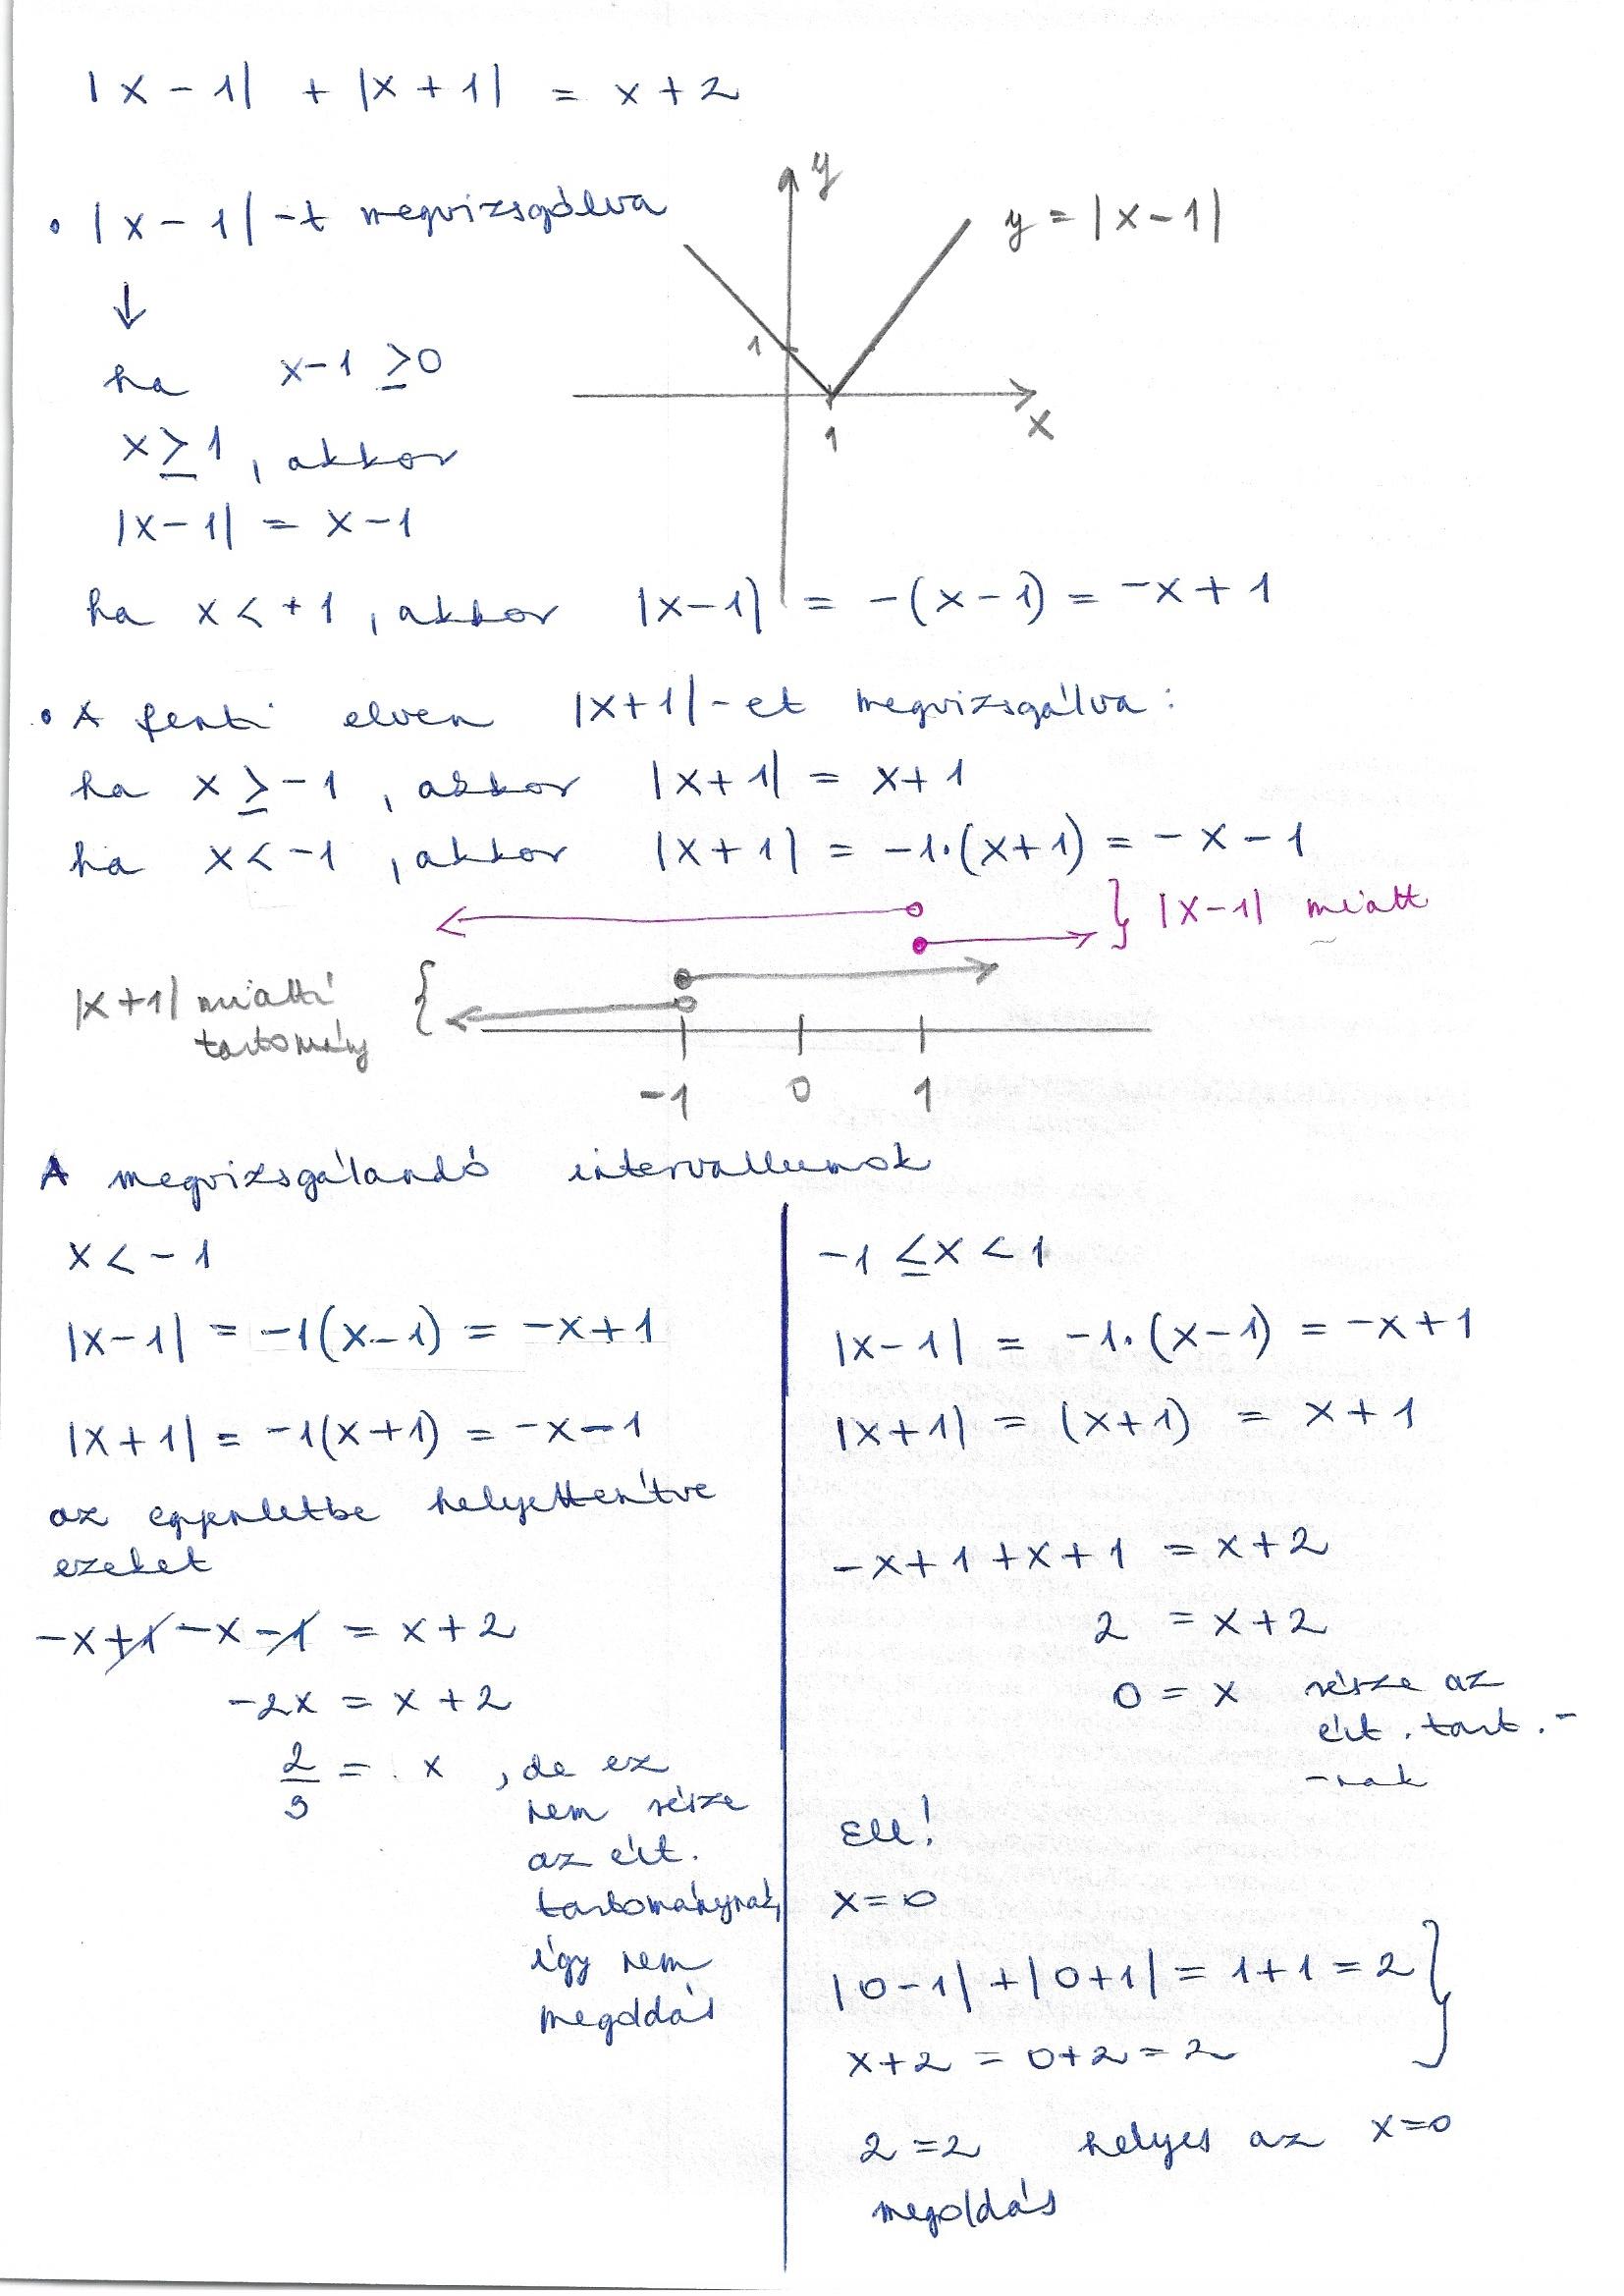 |x - 1| + |x + 1| = x + 2
• |x - 1| -t megvizsgálva
↓
y
y = |x - 1|
1
1
x
ha x-1 ≥0
x≥1, akkor
|x-1| = x-1
ha x < +1, akkor |x-1| = -(x-1) = -x+1
• A fenti elven |x+1|-et megvizsgálva:
ha x ≥ -1, akkor |x+1| = x+1
ha x < -1, akkor |x+1| = -1·(x+1) = -x-1
} |x-1| miatt
|x+1| miatti {
tartomány
-1 0 1
A megvizsgálandó intervallumok
x < -1
|x-1| = -1(x-1) = -x+1
|x+1| = -1(x+1) = -x-1
az egyenletbe helyettesítve
ezeket
-x+1-x-1 = x+2
-2x = x+2
2/3 = x, de ez
nem része
az ért.
tartománynak,
így nem
megoldás
-1 ≤ x < 1
|x-1| = -1·(x-1) = -x+1
|x+1| = (x+1) = x+1
-x+1+x+1 = x+2
2 = x+2
0 = x része az
ért. tart.-
-nak
Ell!
x=0
|0-1|+|0+1| = 1+1 = 2 }
x+2 = 0+2 = 2
2=2 helyes az x=0
megoldás